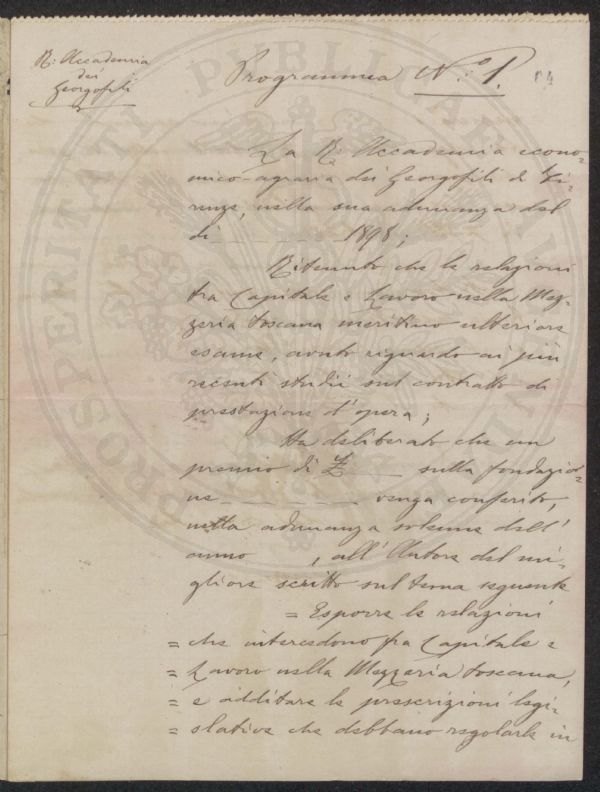 R. Accademia
dei
Georgofili
Programma N.º 1.
64
La R. Accademia econo=
mico-agraria dei Georgofili di Fi=
renze, nella sua adunanza del
dì _ _ _ _ _ 1898;
Ritenuto che le relazioni
tra Capitale e Lavoro nella Mez=
zeria toscana meritino ulteriore
esame, avuto riguardo ai più
recenti studii sul contratto di
prestazione d'opera;
Ha deliberato che un
premio di £ _ _ sulla fondazio=
ne _ _ _ _ _ venga conferito,
nella adunanza solenne dell'
anno , all'Autore del mi=
gliore scritto sul tema seguente
= Esporre le relazioni
= che intercedono fra Capitale e
= Lavoro nella Mezzeria toscana,
= e additare le prescrizioni legi=
= slative che debbano regolarle in
PROSPERITATI PUBLICAE